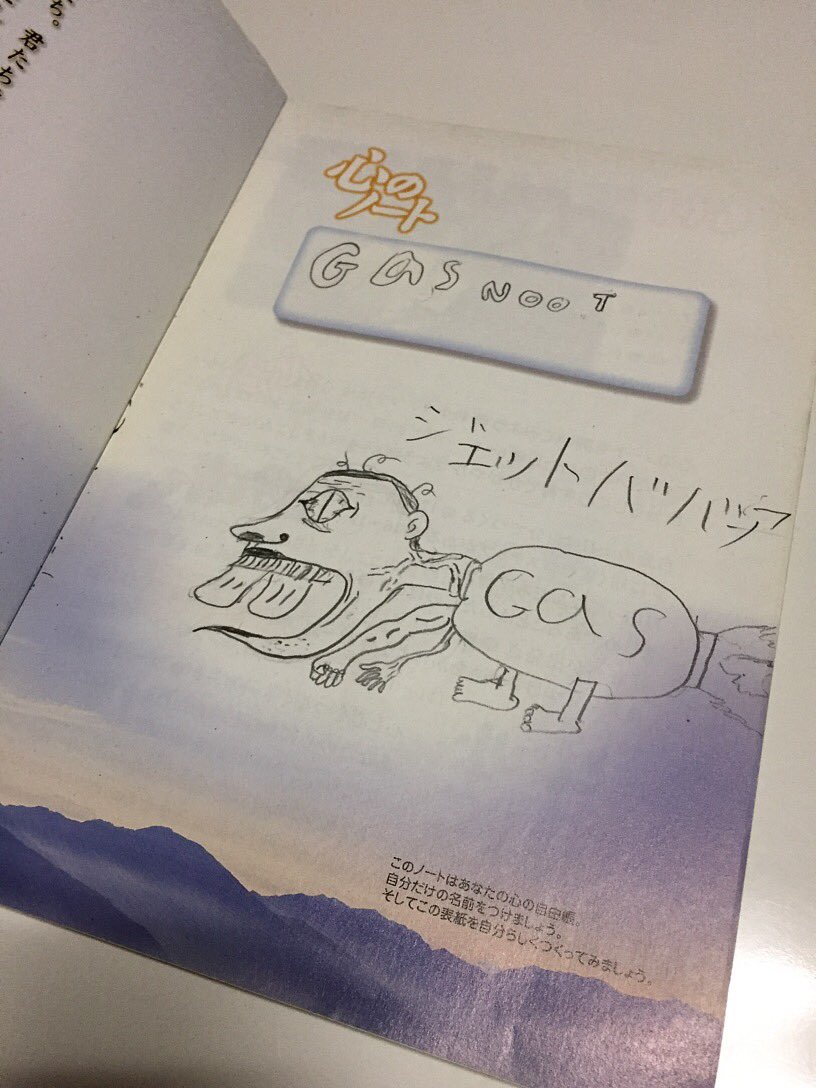 ち。
君たち
心の
ノート
Gas NooT
ジェットババァ
Gas
このノートはあなたの心の自由帳。
自分だけの名前をつけましょう。
そしてこの表紙を自分らしくつくってみましょう。